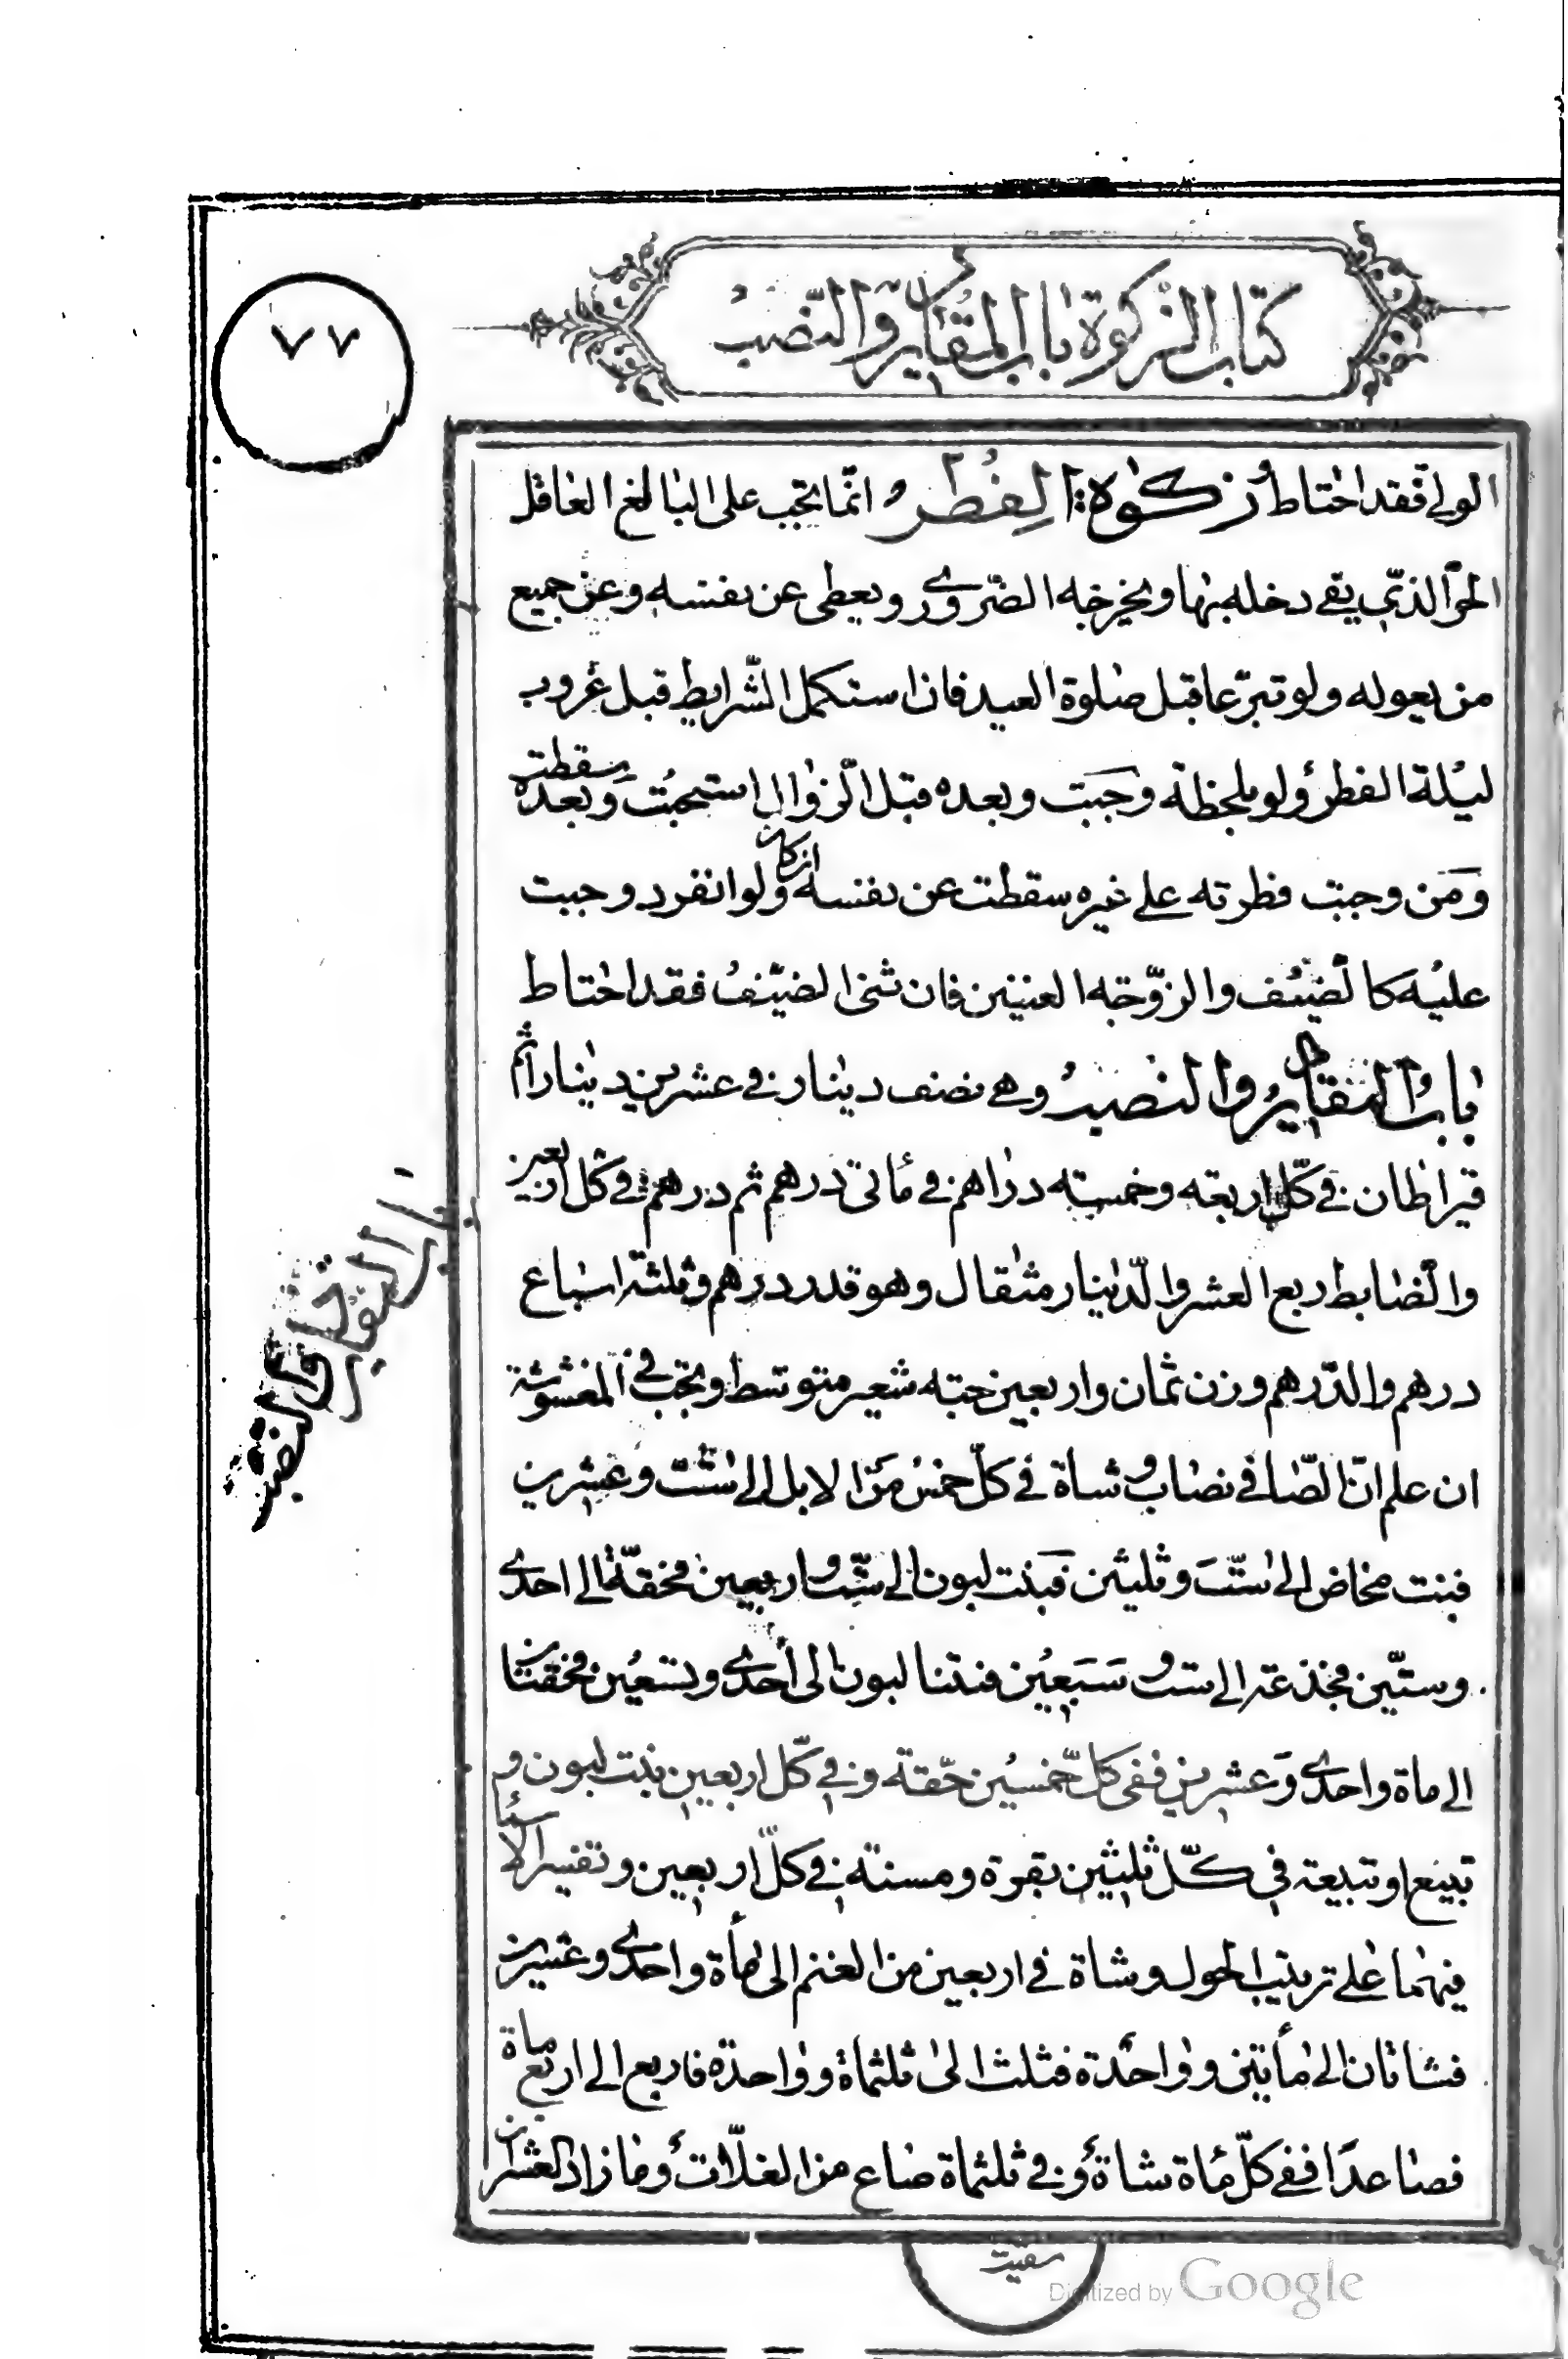 كتاب الزكوة باب المقادير والنصب
٧٧
الولي فقد احتاط زكوة الفطر انما تجب على البالغ العاقل
الحر الذي يفي دخله بها وبخرجه الضروري ويعطى عن نفسه وعن جميع
من يعوله ولو تبرعا قبل صلوة العيد فان استكمل الشرايط قبل غروب
ليلة الفطر ولو بلحظة وجبت وبعده قبل الزوال استحبت وبعده سقطت
ومن وجبت فطرته على غيره سقطت عن نفسه ولو انفرد وجبت
عليه كالضيف والزوجة الغنيين فان ثنى الضيف فقد احتاط
باب المقادير والنصب وهى نصف دينار في عشرين دينارا ثم
قيراطان في كل اربعة وخمسة دراهم في مأتى درهم ثم درهم في كل اربعين
والضابط ربع العشر والدينار مثقال وهو قدر درهم وثلثة اسباع
درهم والدرهم وزن ثمان واربعين حبة شعير متوسط وتجب في المغشوشة
ان علم ان الصافي نصاب وشاة في كل خمس من الابل الى ست وعشرين
فبنت مخاض الى ست وثلثين فبنت لبون الى ست واربعين فحقة الى احدى
وستين فجذعة الى ست وسبعين فبنتا لبون الى احدى وتسعين فحقتان
الى ماة واحدى وعشرين ففى كل خمسين حقة وفى كل اربعين بنت لبون و
تبيع او تبيعة في كل ثلثين بقرة ومسنة في كل اربعين وتفسير الاسنا
فيهما على ترتيب الحول وشاة في اربعين من الغنم الى مأة واحدى وعشرين
فشاتان الى مأتين وواحدة فثلث الى ثلثماة وواحدة فاربع الى اربعماة
فصاعدا ففى كل ماة شاة وفى ثلثماة صاع من الغلات وما زاد العشر ان
باب المقادير والنصب
سقيت
Digitized by Google